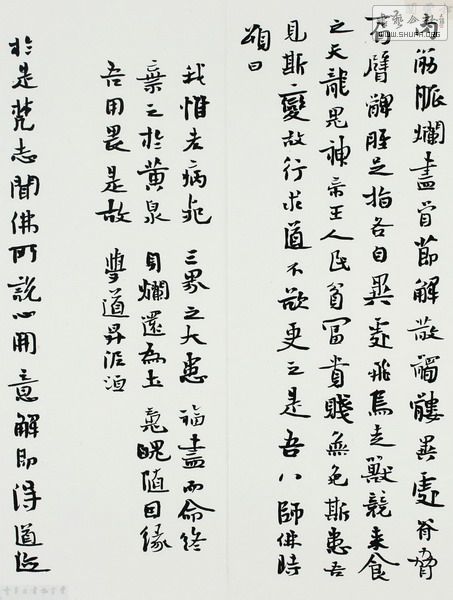 肉筋脈爛盡骨節解散髑髏異處脊脅
肩臂髀脛足指各自異處飛鳥走獸競来食
之天龍鬼神帝王人民貧冨貴賤無免斯患吾
見斯變故行求道不欲更之是吾八師佛時
頌曰
我惟老病死 三界之大患 福盡而命终
棄之於黃泉 身爛還為土 魂魄随因緣
吾用畏是故 學道昇泥洹
於是梵志聞佛所說心開意解即得道迹
WWW.SHUFA.ORG